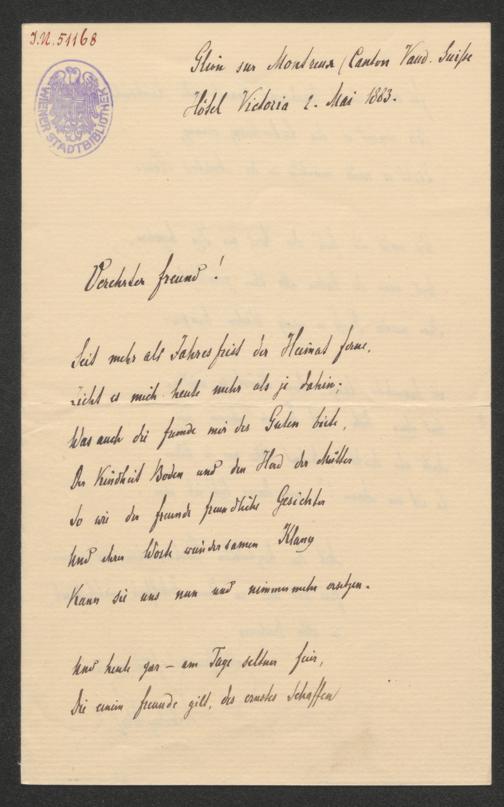 I.N. 51168
WIENER STADTBIBLIOTHEK
Glion sur Montreux (Canton Vaud. Suiße
Hôtel Victoria 2. Mai 1883.
Verehrter Freund!
Seit mehr als Jahresfrist der Heimat ferne,
Zieht es mich heute mehr als je dahin;
Was auch die Fremde mir des Guten biete,
Der Kindheit Boden und den Herd der Mütter
So wie der Freunde freundliche Gesichter
Und ihrer Worte wundersamen Klang
Kann sie uns nun und nimmermehr ersetzen.
Und heute gar – am Tage seltner Feier,
Die einem Freunde gilt, des ernstes Schaffen